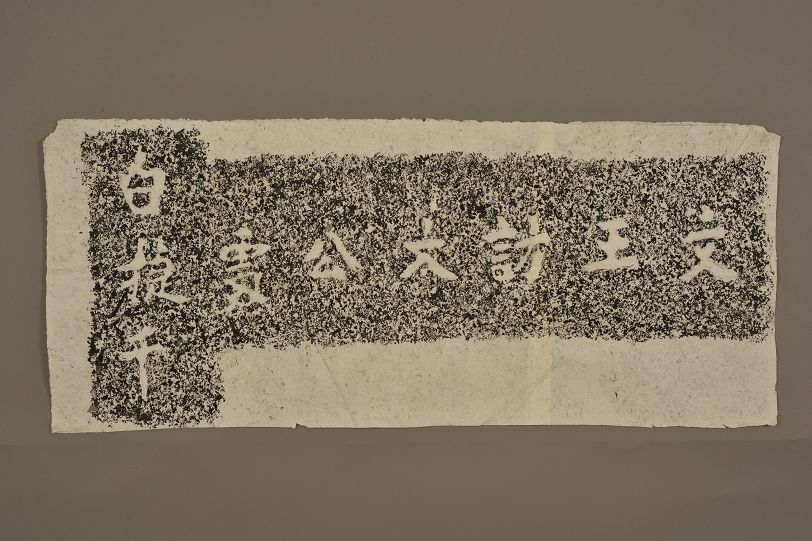 文王訪太公處
白千